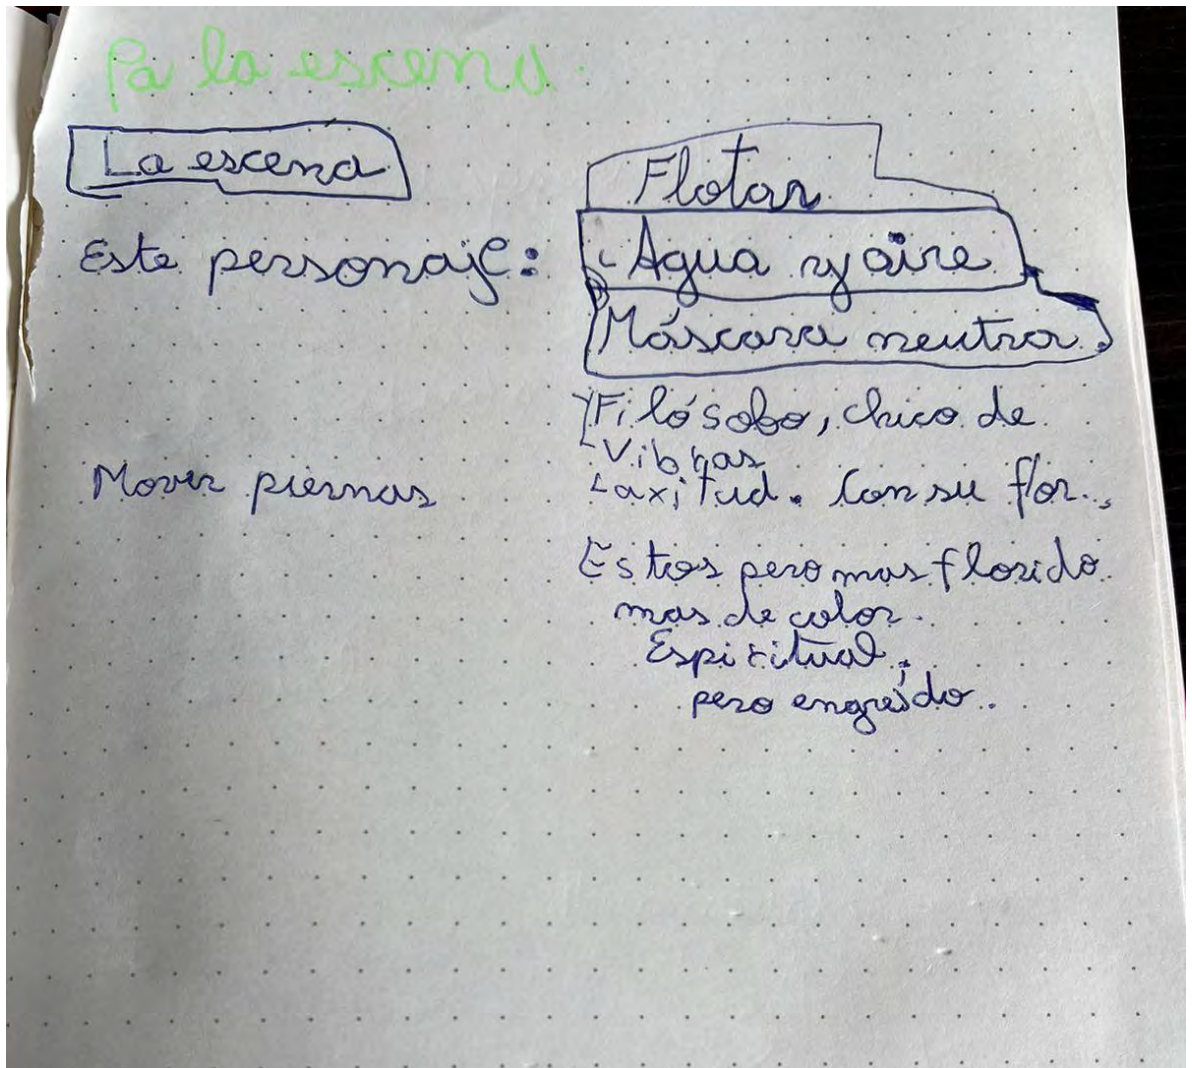 Pa la escena.
La escena
Este personaje:
Flotar
Agua y aire
Máscara neutra.
Filósobo, chico de
Vibras
Laxitud. Con su flor.
Mover piernas
Estos pero mas florido
mas de color.
Espiritual,
pero engreído.